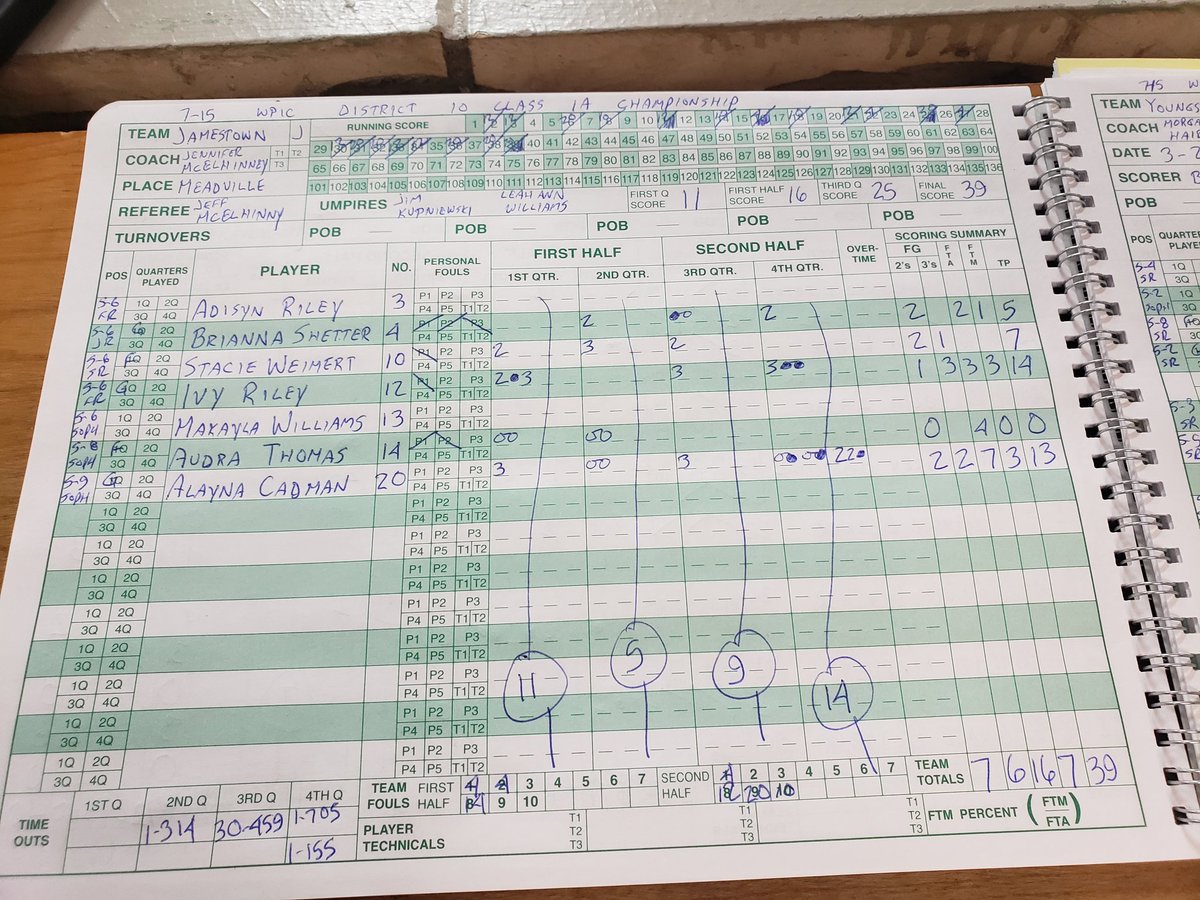 7-15 WPIC DISTRICT 10 CLASS 1A CHAMPIONSHIP
TEAM JAMESTOWN J
RUNNING SCORE
COACH JENNIFER McELHINNEY T1 T2 T3
65 66 67 68 69 70 71 72 73 74 75 76 77 78 79 80 81 82 83 84 85 86 87 88 89 90 91 92 93 94 95 96 97 98 99 100
PLACE MEADVILLE
101 102 103 104 105 106 107 108 109 110 111 112 113 114 115 116 117 118 119 120 121 122 123 124 125 126 127 128 129 130 131 132 133 134 135 136
REFEREE JEFF McELHINNY
UMPIRES JIM KUPNIEWSKI LEAH ANN WILLIAMS
FIRST Q SCORE 11 FIRST HALF SCORE 16 THIRD Q SCORE 25 FINAL SCORE 39
TURNOVERS POB POB POB POB POB
POS QUARTERS PLAYED PLAYER NO. PERSONAL FOULS FIRST HALF SECOND HALF OVER-TIME SCORING SUMMARY
1ST QTR. 2ND QTR. 3RD QTR. 4TH QTR. FG 2's 3's FTA FTM TP
5-6 FR 1Q 2Q 3Q 4Q ADISYN RILEY 3 P1 P2 P3 P4 P5 T1 T2
5-6 JR 2Q 3Q 4Q BRIANNA SHETTER 4 P1 P2 P3 P4 P5 T1 T2 2 00 2 2 2 1 5
5-6 SR 2Q 3Q 4Q STACIE WEIMERT 10 P1 P2 P3 P4 P5 T1 T2 2 3 2 2 1 7
5-6 FR G 2Q 3Q 4Q IVY RILEY 12 P1 P2 P3 P4 P5 T1 T2 2 3 3 3 1 3 3 3 14
5-6 SOPH 1Q 2Q 3Q 4Q MAKAYLA WILLIAMS 13 P1 P2 P3 P4 P5 T1 T2
5-8 SOPH 2Q 3Q 4Q AUDRA THOMAS 14 P1 P2 P3 P4 P5 T1 T2 00 00 0 4 0 0
5-9 SOPH 2Q 3Q 4Q ALAYNA CADMAN 20 P1 P2 P3 P4 P5 T1 T2 3 00 3 2 2 2 2 7 3 13
1Q 2Q 3Q 4Q P1 P2 P3 P4 P5 T1 T2
1Q 2Q 3Q 4Q P1 P2 P3 P4 P5 T1 T2
1Q 2Q 3Q 4Q P1 P2 P3 P4 P5 T1 T2
1Q 2Q 3Q 4Q P1 P2 P3 P4 P5 T1 T2
1Q 2Q 3Q 4Q P1 P2 P3 P4 P5 T1 T2
1Q 2Q 3Q 4Q P1 P2 P3 P4 P5 T1 T2
1Q 2Q 3Q 4Q P1 P2 P3 P4 P5 T1 T2
1Q 2Q 3Q 4Q P1 P2 P3 P4 P5 T1 T2
11 5 9 14
TIME OUTS 1ST Q 2ND Q 3RD Q 4TH Q
1-314 30-459 1-705
1-155
TEAM FOULS FIRST HALF 3 4 5 6 7 9 10
SECOND HALF 1 2 3 4 5 6 7 10
TEAM TOTALS 7 6 16 7 39
PLAYER TECHNICALS T1 T2 T3 T1 T2 T3 T1 T2 T3
FTM PERCENT (FTM/FTA)
TEAM YOUNGS
COACH MORGA
DATE 3-2
SCORER B
POB
POS QUARTE PLAYE